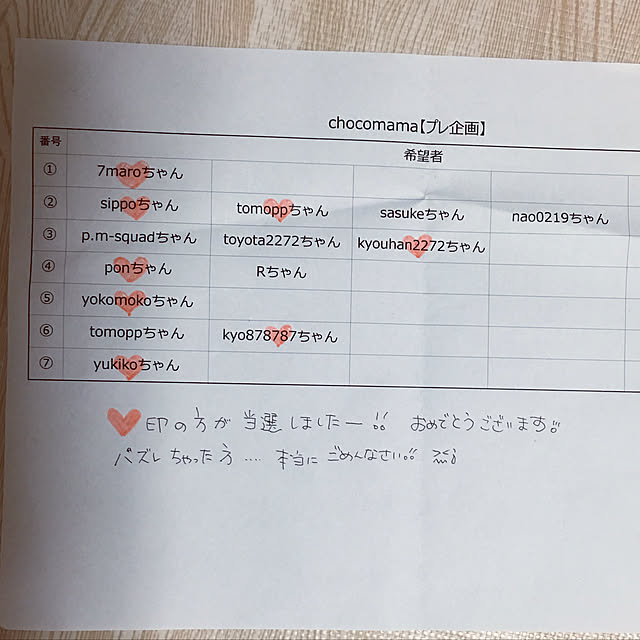 chocomama【プレ企画】
番号 希望者
① 7maroちゃん
② sippoちゃん tomoppちゃん sasukeちゃん nao0219ちゃん
③ p.m-squadちゃん toyota2272ちゃん kyouhan2272ちゃん
④ ponちゃん Rちゃん
⑤ yokomokoちゃん
⑥ tomoppちゃん kyo878787ちゃん
⑦ yukikoちゃん
印の方が当選しましたー!! おめでとうございます!!
ハズレちゃった方.... 本当にごめんなさい!!